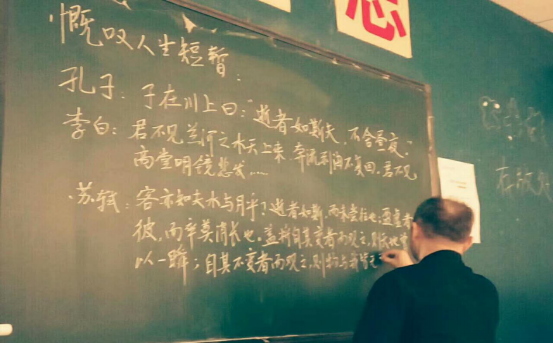 慨叹人生短暂:
孔子: 子在川上曰:"逝者如斯夫,不舍昼夜"
李白: 君不见黄河之水天上来 奔流到海不复回,君不见
高堂明镜悲发....
苏轼: 客亦知夫水与月乎?逝者如斯,而未尝往也;盈虚者
彼,而卒莫消长也。盖将自其变者而观之,则天地曾
以一瞬;自其不变者而观之,则物与我皆无